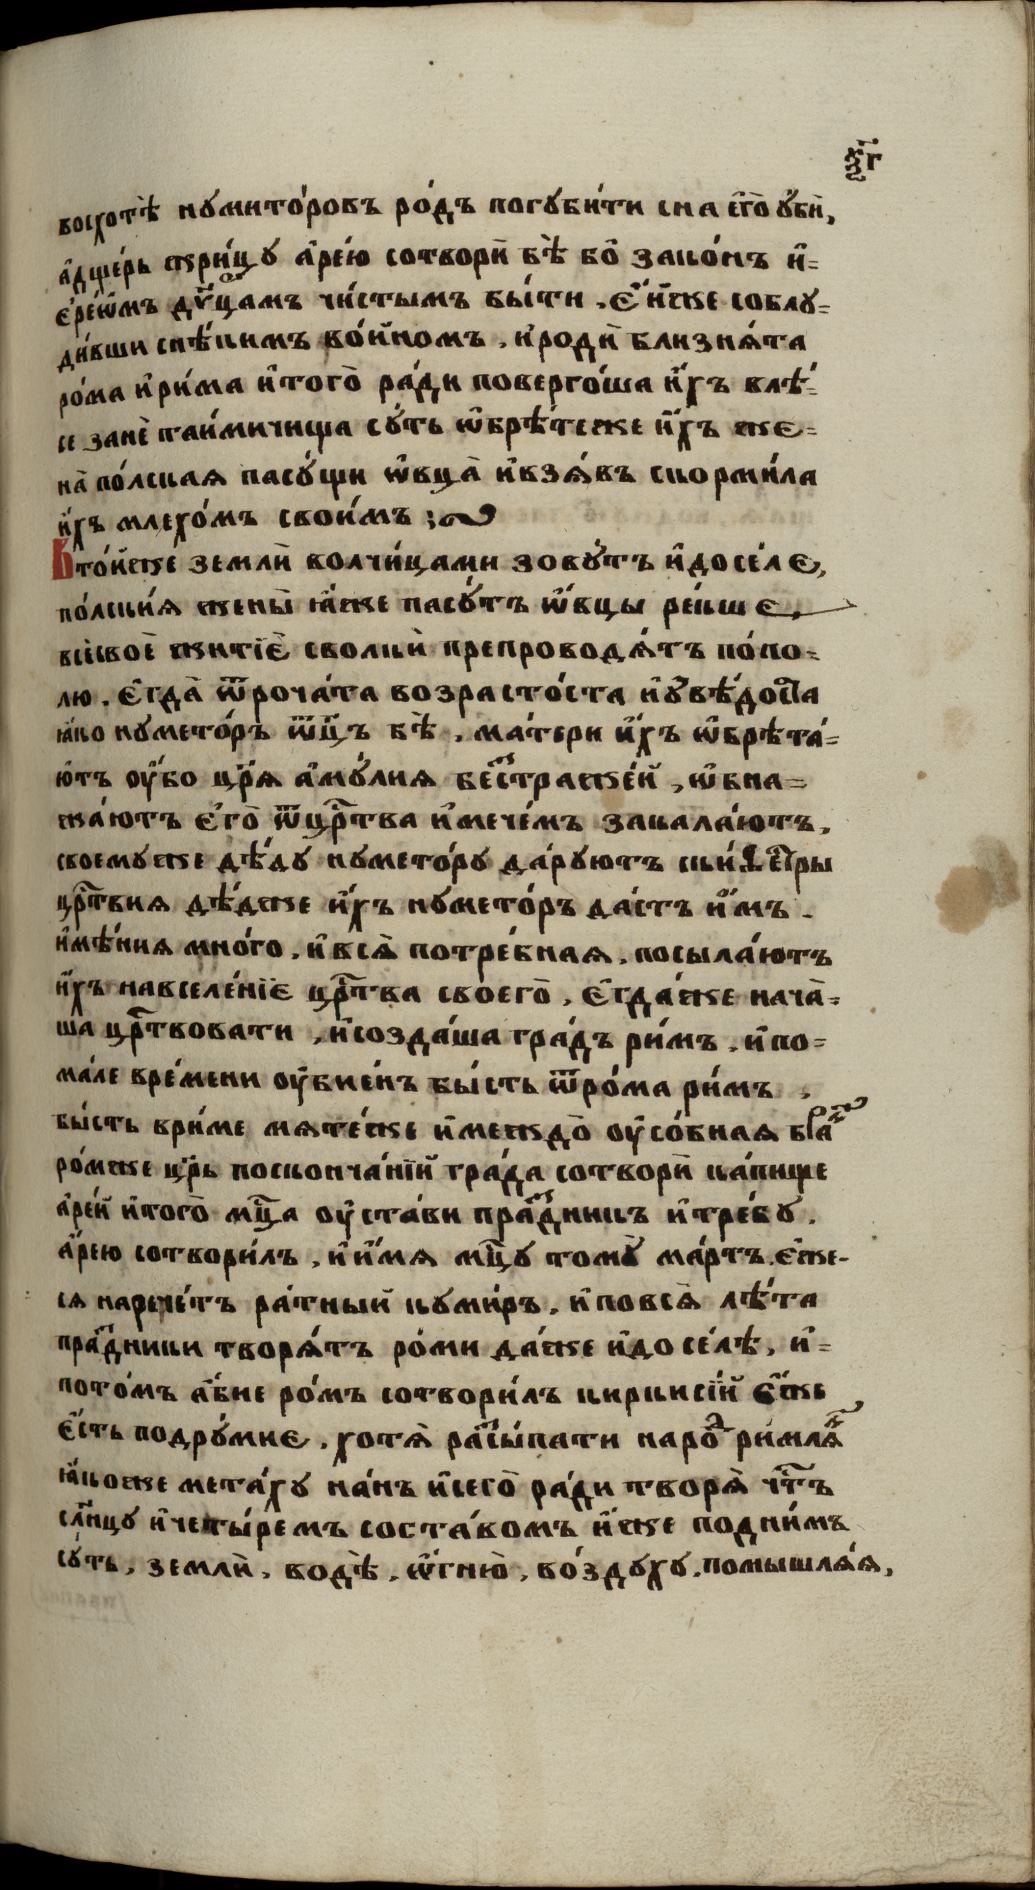 ѯ҃г
восхотѣ̀ нумито́ровъ ро́дъ погуби́ти сна є҆го̀ ѹ҆бѝ,
а҆дще́рь жри́цу а҆ре́ю сотворѝ бѣ̀ бо̀ зако́нъ и҆=
є҆ре́ѡмъ дв҃цамъ чи́стымъ бы́ти. є҆́йже соблу=
ди́вши снѣ́кимъ во́йномъ, и҆родѝ близня́та
ро́ма и҆ри́ма и҆того̀ ра́ди поверго́ша и҆́хъ влѣ́=
се занѐ таи́мичища су́ть ѡ҆брѣ́теже и҆́хъ же=
на̀ по́лская пасу́щи ѡ҆вца̀ и҆взя́въ скорми́ла
и҆́хъ млеко́мъ свои́мъ :~
В то́йже землѝ волчи́цами зову́тъ и҆доселє,
по́лскія жены̀ ꙗ҆́же пасу́тъ ѡ҆́вцы ре́кше,
всѐсвоѐ житїѐ сволкѝ препроводя́тъ по́по=
лю. є҆гда̀ ѿроча́та возрасто́ста и҆ѹвѣ́доста
ꙗ҆́ко нумето́ръ ѿц҃ъ бѣ̀, ма́тери и҆́хъ ѡ҆брѣта́=
ютъ оу҆́бо цр҃я а҆му́лия бестраже́й, ѡ҆бна=
жа́ютъ є҆го̀ ѿцр҃тва и҆мече́мъ закала́ютъ,
своемуже дѣ́ду нумето́ру да́руютъ ски́ѳетры
цр҃твия дѣ́дже и҆́хъ нумето́ръ да́стъ и҆́мъ.
и҆мѣ́ния мно́го, и҆вся̀ потре́бная, посыла́ютъ
и҆́хъ навселе́нїе цр҃тва своего̀, є҆гда́же нача́=
ша цр҃твовати, и҆созда́ша гра́дъ ри́мъ, и҆по=
ма́ле вре́мени оу҆бие́нъ бы́сть ѿро́ма ри́мъ,
бы́сть ври́ме мяте́же и҆межⷣо̀ оу҆со́бная браⷩ҇
ро́мже цр҃ь посконча́нїй гра́да сотворѝ капище
а҆ре́й и҆того̀ мц҃а оу҆ста́ви праⷥ҇дникъ и҆тре́бу.
а҆́рею сотвори́лъ, и҆и҆́мя мц҃у тому̀ ма́ртъ. є҆́же=
ся наре́четъ ра́тный куми́ръ, и҆повся̀ лѣ́та
праⷥ҇дники творя́тъ ро́ми да́же и҆до се́лѣ, и҆=
пото́мъ а҆́бие ро́мъ сотвори́лъ киркисїй є҆́же
є҆́сть подру́мие, хотя̀ расы́пати нароⷣ ри́мляⷩ
ꙗ҆́коже мета́ху на́нъ и҆сего̀ ра́ди творя̀ чтⷭ҇ъ
слн҃цу и҆четы́ремъ соста́вомъ и҆́же подни́мъ
су́ть, землѝ, водѣ̀, ѡ҆гню̀, во́здуху. помышля́я,